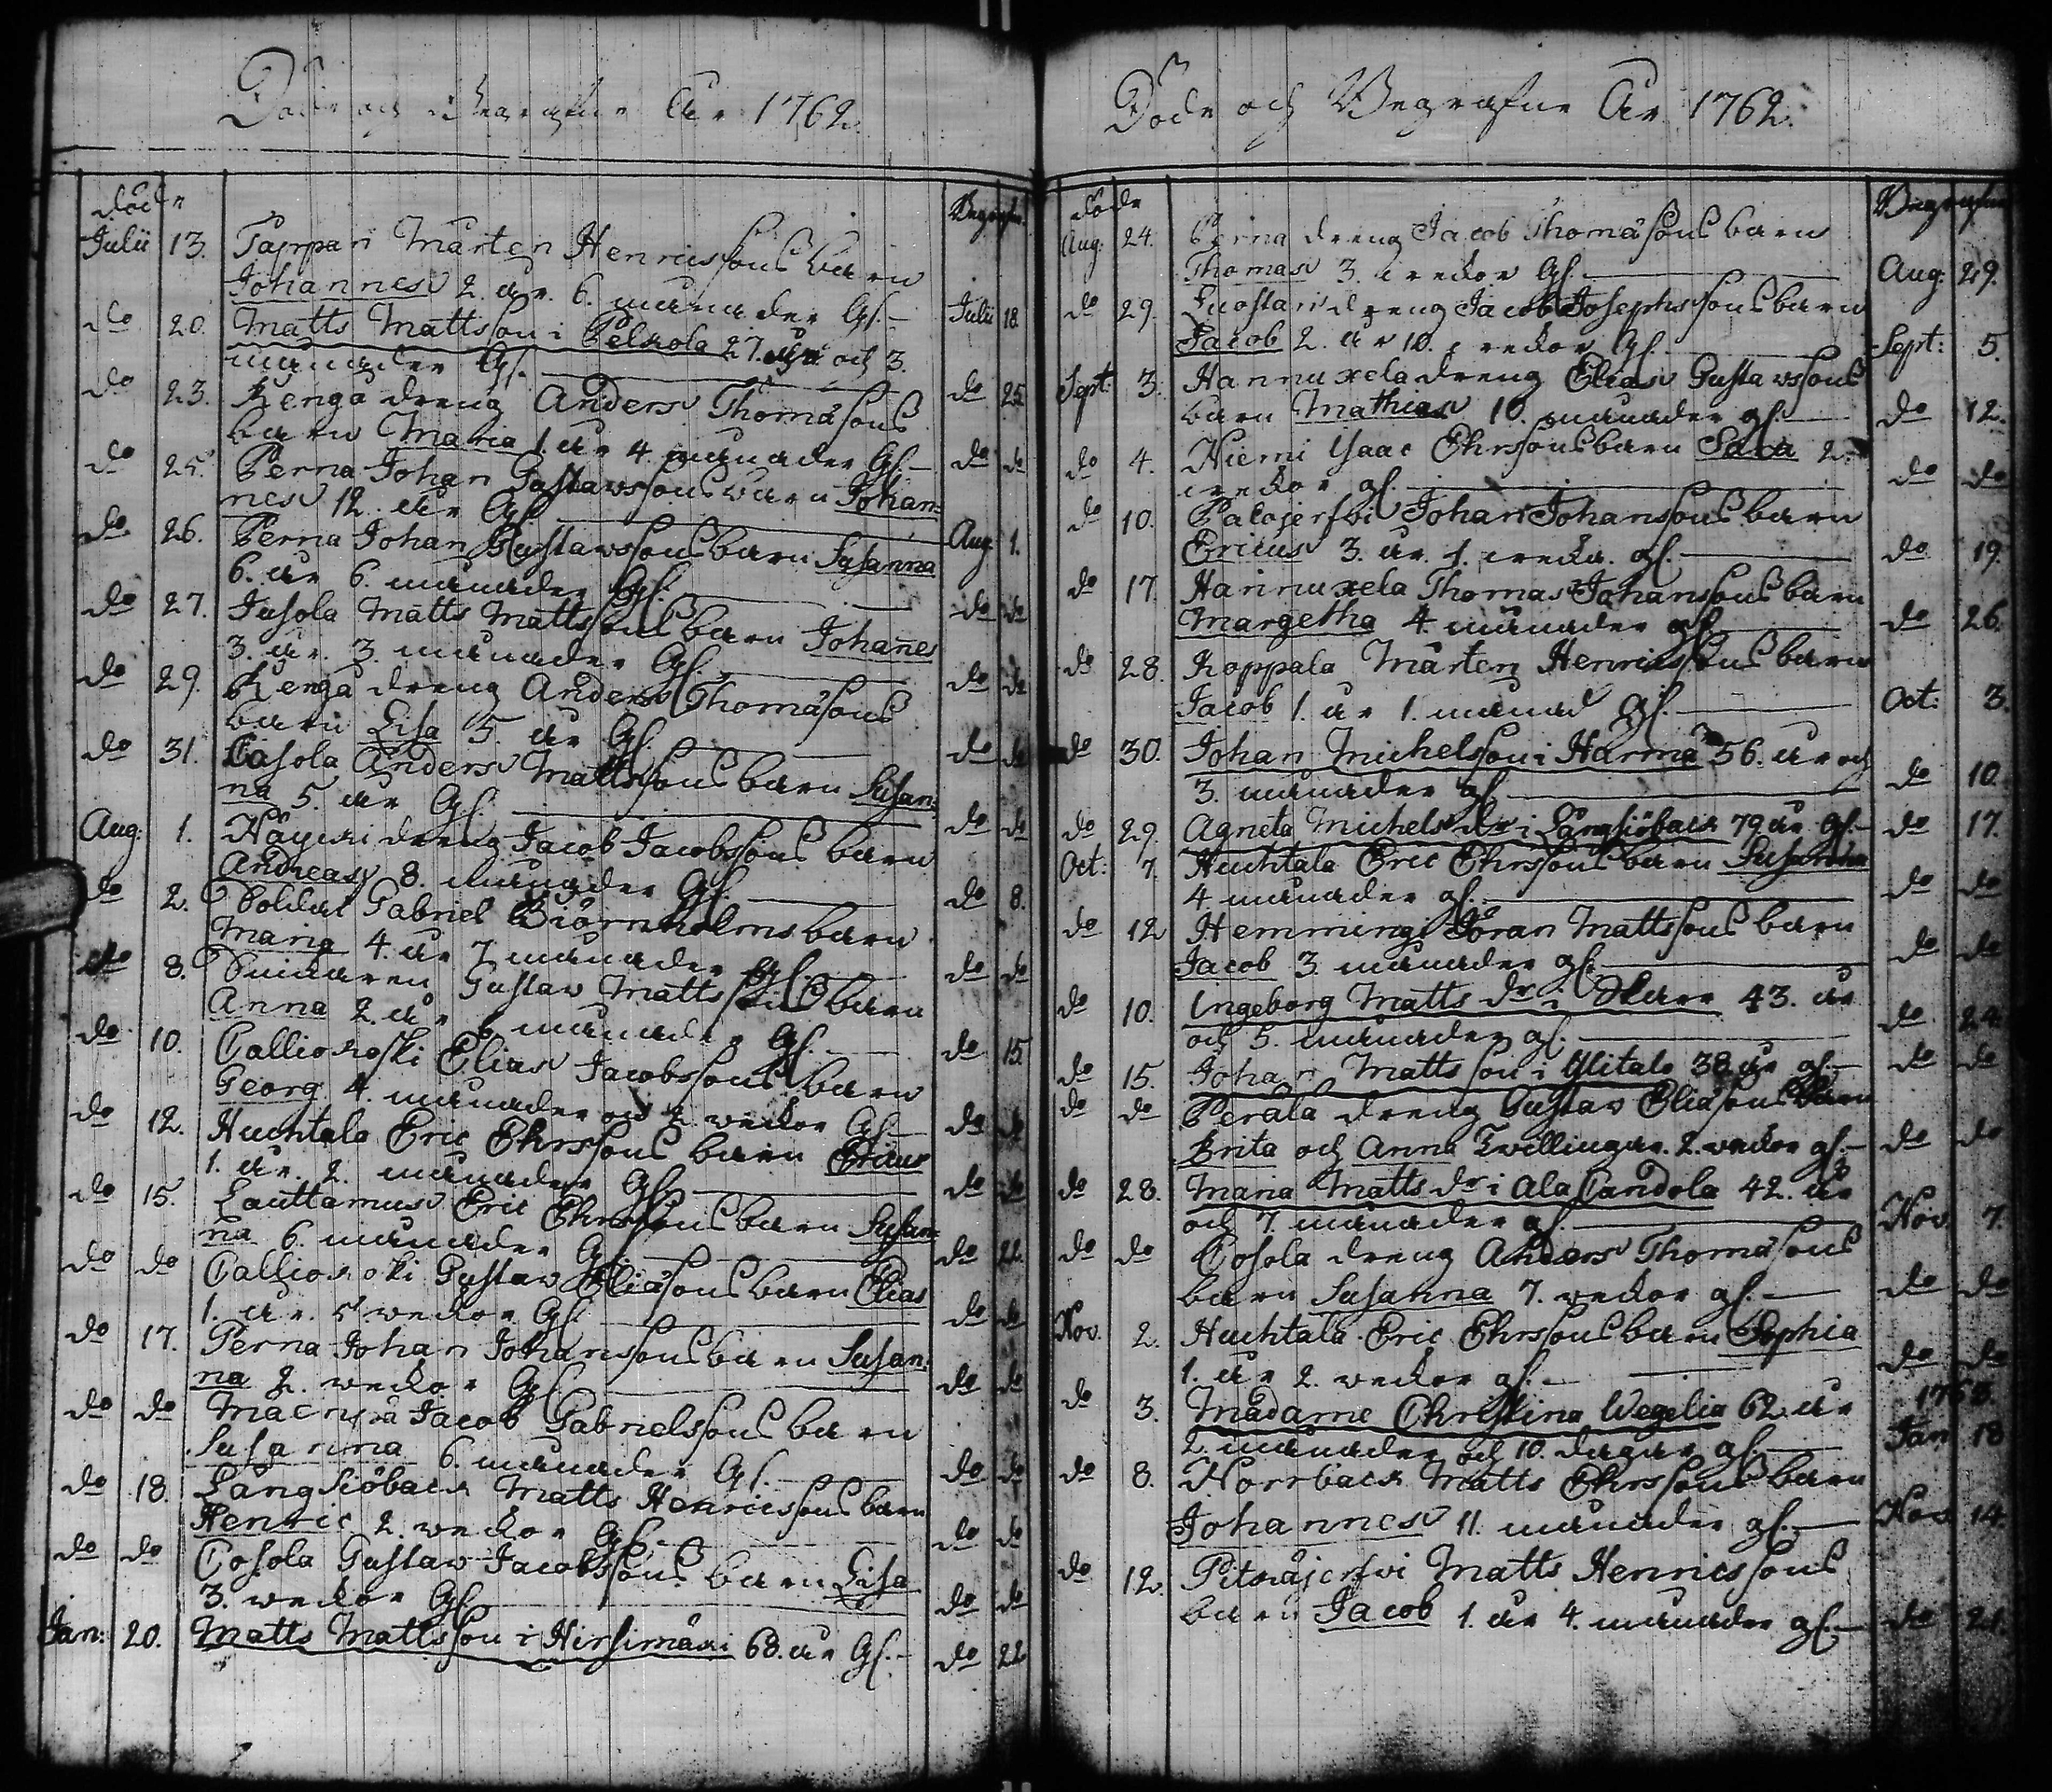 Döde och Begrafne År 1762.
Döde Begrafne
Julii 13. Tappari Mårten Henricssons barn
Johannes 2. år. 6. månader Gl. Julii 18.
do 20. Matts Mattsson i Pelkola 27. åhr och 3.
månader Gl. do 25.
do 23. Renga dreng Anders Thomæsons
barn Maria 1. år 4. månader Gl. do do
do 25. Perna Johan Gustavssons barn Johan=
nes 12. år Gl. Aug. 1.
do 26. Perna Johan Gustavssons barn Susanna
6. år 6. månader Gl. do do
do 27. Jusola Matts Mattssons barn Johañes
3. år. 3. månader Gl. do do
do 29. Renga dreng Anders Thomæsons
barn Lisa 5. år Gl. do do
do 31. Casola Anders Mattssons barn Susan=
na 5. år Gl. do do
Aug: 1. dreng Jacob Jacobssons barn
Andreas 8. månader Gl. do 8.
do 2. Soldat Gabriel Biörnholms barn
Maria 4. år 7. månader Gl. do do
do 8. Gustav Mattssons barn
Anna 2. år 6 månader Gl. do 15.
do 10. Callionoski Elias Jacobssons barn
Georg 4. månader och 2. wekor Gl. do do
do 12. Huchtala Eric Ehrssons barn Ericus
1. år. 2. månader Gl. do do
do 15. Lauttamus Eric Ehrssons barn Susan=
na 6. månader Gl. do 22.
do do Calliokoski Gustav Eliæsons barn Elias
1. år. 5 wekor Gl. do do
do 17. Perna Johan Johanssons barn Susan=
na 2. wekor Gl. do do
do do Jacob Gabrielssons barn
Susanna 6. månader Gl. do do
do 18. Långsiöback Matts Henricssons barn
Henric 2. wekor Gl. do do
do do Cosola Gustav Jacobssons barn Lisa
3. wekor Gl. do do
Jan: 20. Matts Mattsson i Hirsimäki 68. år Gl. do 22
Döde och Begrafne År 1762.
Döde Begrafne
Aug: 24. Perna dreng Jacob Thomæsons barn
Thomas 3. wekor Gl. Aug: 29.
do 29. Luostari dreng Jacob Josephssons barn
Jacob 2. år 10. wekor Gl. Sept: 5.
Sept: 3. Hannuxela dreng Elias Gustavssons
barn Mathias 10. månader gl. do 12.
do 4. Niemi Isaac Ehrssons barn Sara 2.
wekor gl. do do
do 10. Palojerfwi Johan Johanssons barn
Ericus 3. år. 1. weka. gl. do 19.
do 17. Hannuxela Thomas Johanssons barn
Margetha 4. månader gl. do 26.
do 28. Koppala Mårten Henricssons barn
Jacob 1. år 1. månad gl. Oct: 3.
do 30. Johan Michelsson i Härmä 56. år och
3. månader gl. do 10.
do 29. Agneta Michels dr i Långsiöback 79 år gl. do 17.
Oct: 7. Huchtala Eric Ehrssons barn Susanna
4 månader gl. do do
do 12 Hemmingi Jöran Mattssons barn
Jacob 3. månader gl. do do
do 10. Ingeborg Matts dr i 43. år
och 5. månader gl. do 24.
do 15. Johan Mattsson i Ylitalo 38 år gl. do do
do do Perälä dreng Gustav Eliæsons barn
Brita och Anna Twillingar. 2. wekor gl. do do
do 28. Maria Matts dr i Ala Candola 42. år
och 7. månader gl. Nov. 7.
do do Cosola dreng Anders Thomæsons
barn Susanna 7. wekor gl. do do
Nov. 2. Huchtala Eric Ehrssons barn Sophia
1. år 2. wekor gl. do do
do 3. Madame Christina Wegelia 62 år 1763
2. månader och 10. dagar gl. Jan 18
do 8. Norrback Matts Ehrssons barn
Johannes 11. månader gl. Nov. 14.
do 12. Pitkäjerfwi Matts Henricssons
barn Jacob 1. år 4. månader gl. do 21.